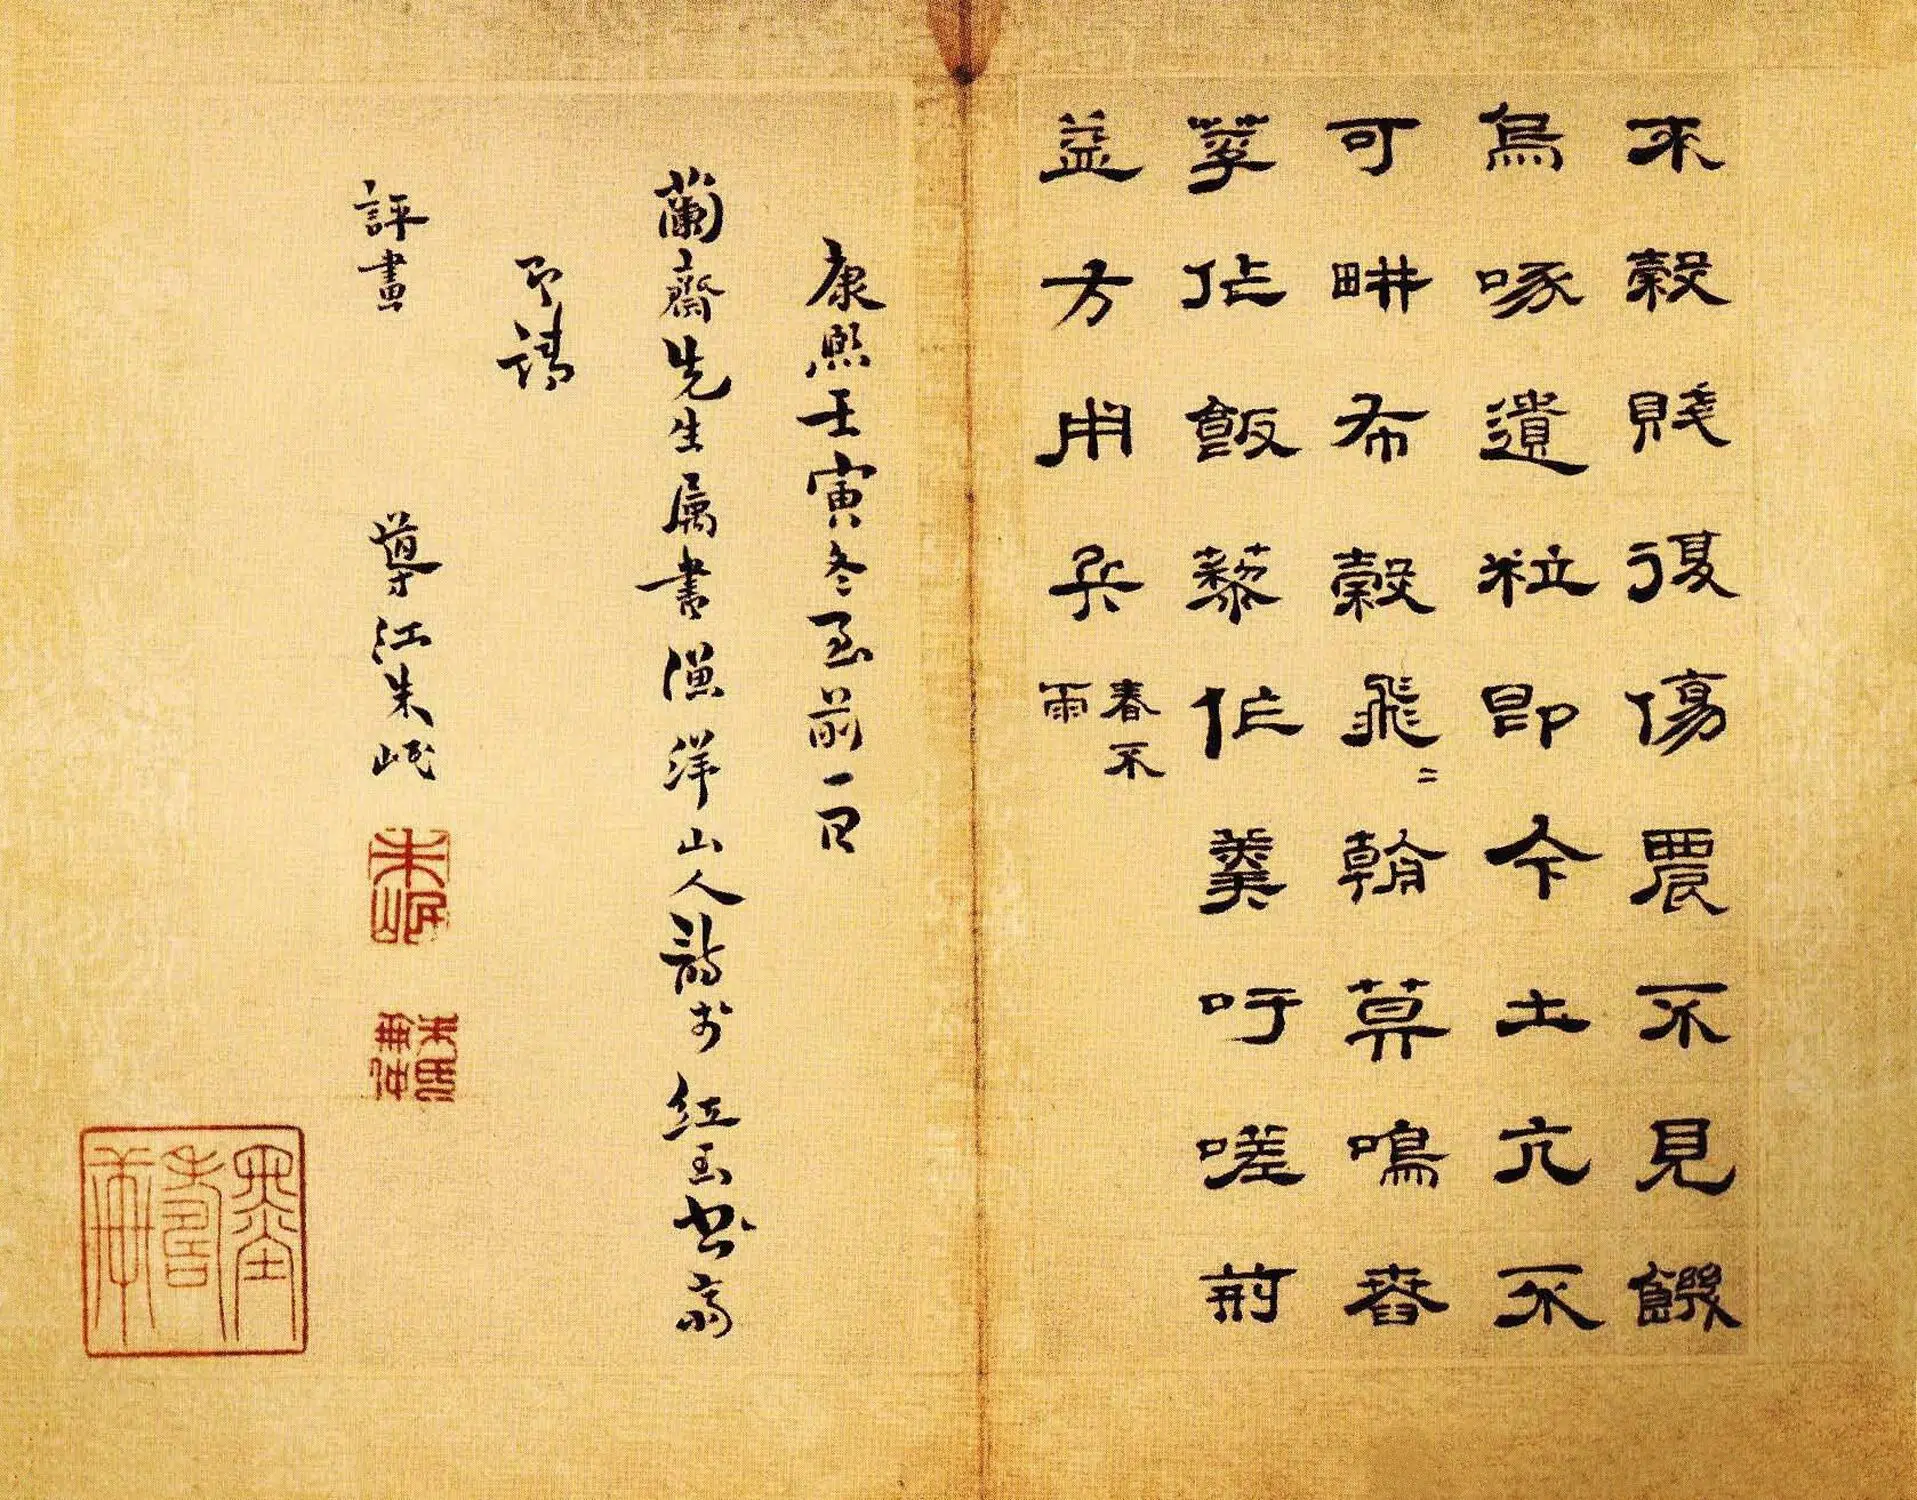 來穀賤復傷農不見饑
烏啄遺粒即今土亢不
可畊布穀飛〻翰莫鳴舂
莩作飯藜作羹吁嗟荊
益方用兵 春不
雨
康熙壬寅冬至前一日
蘭齋先生属書漁洋山人詩於紅玉書齋
予請
評畫 導江朱岷
朱岷